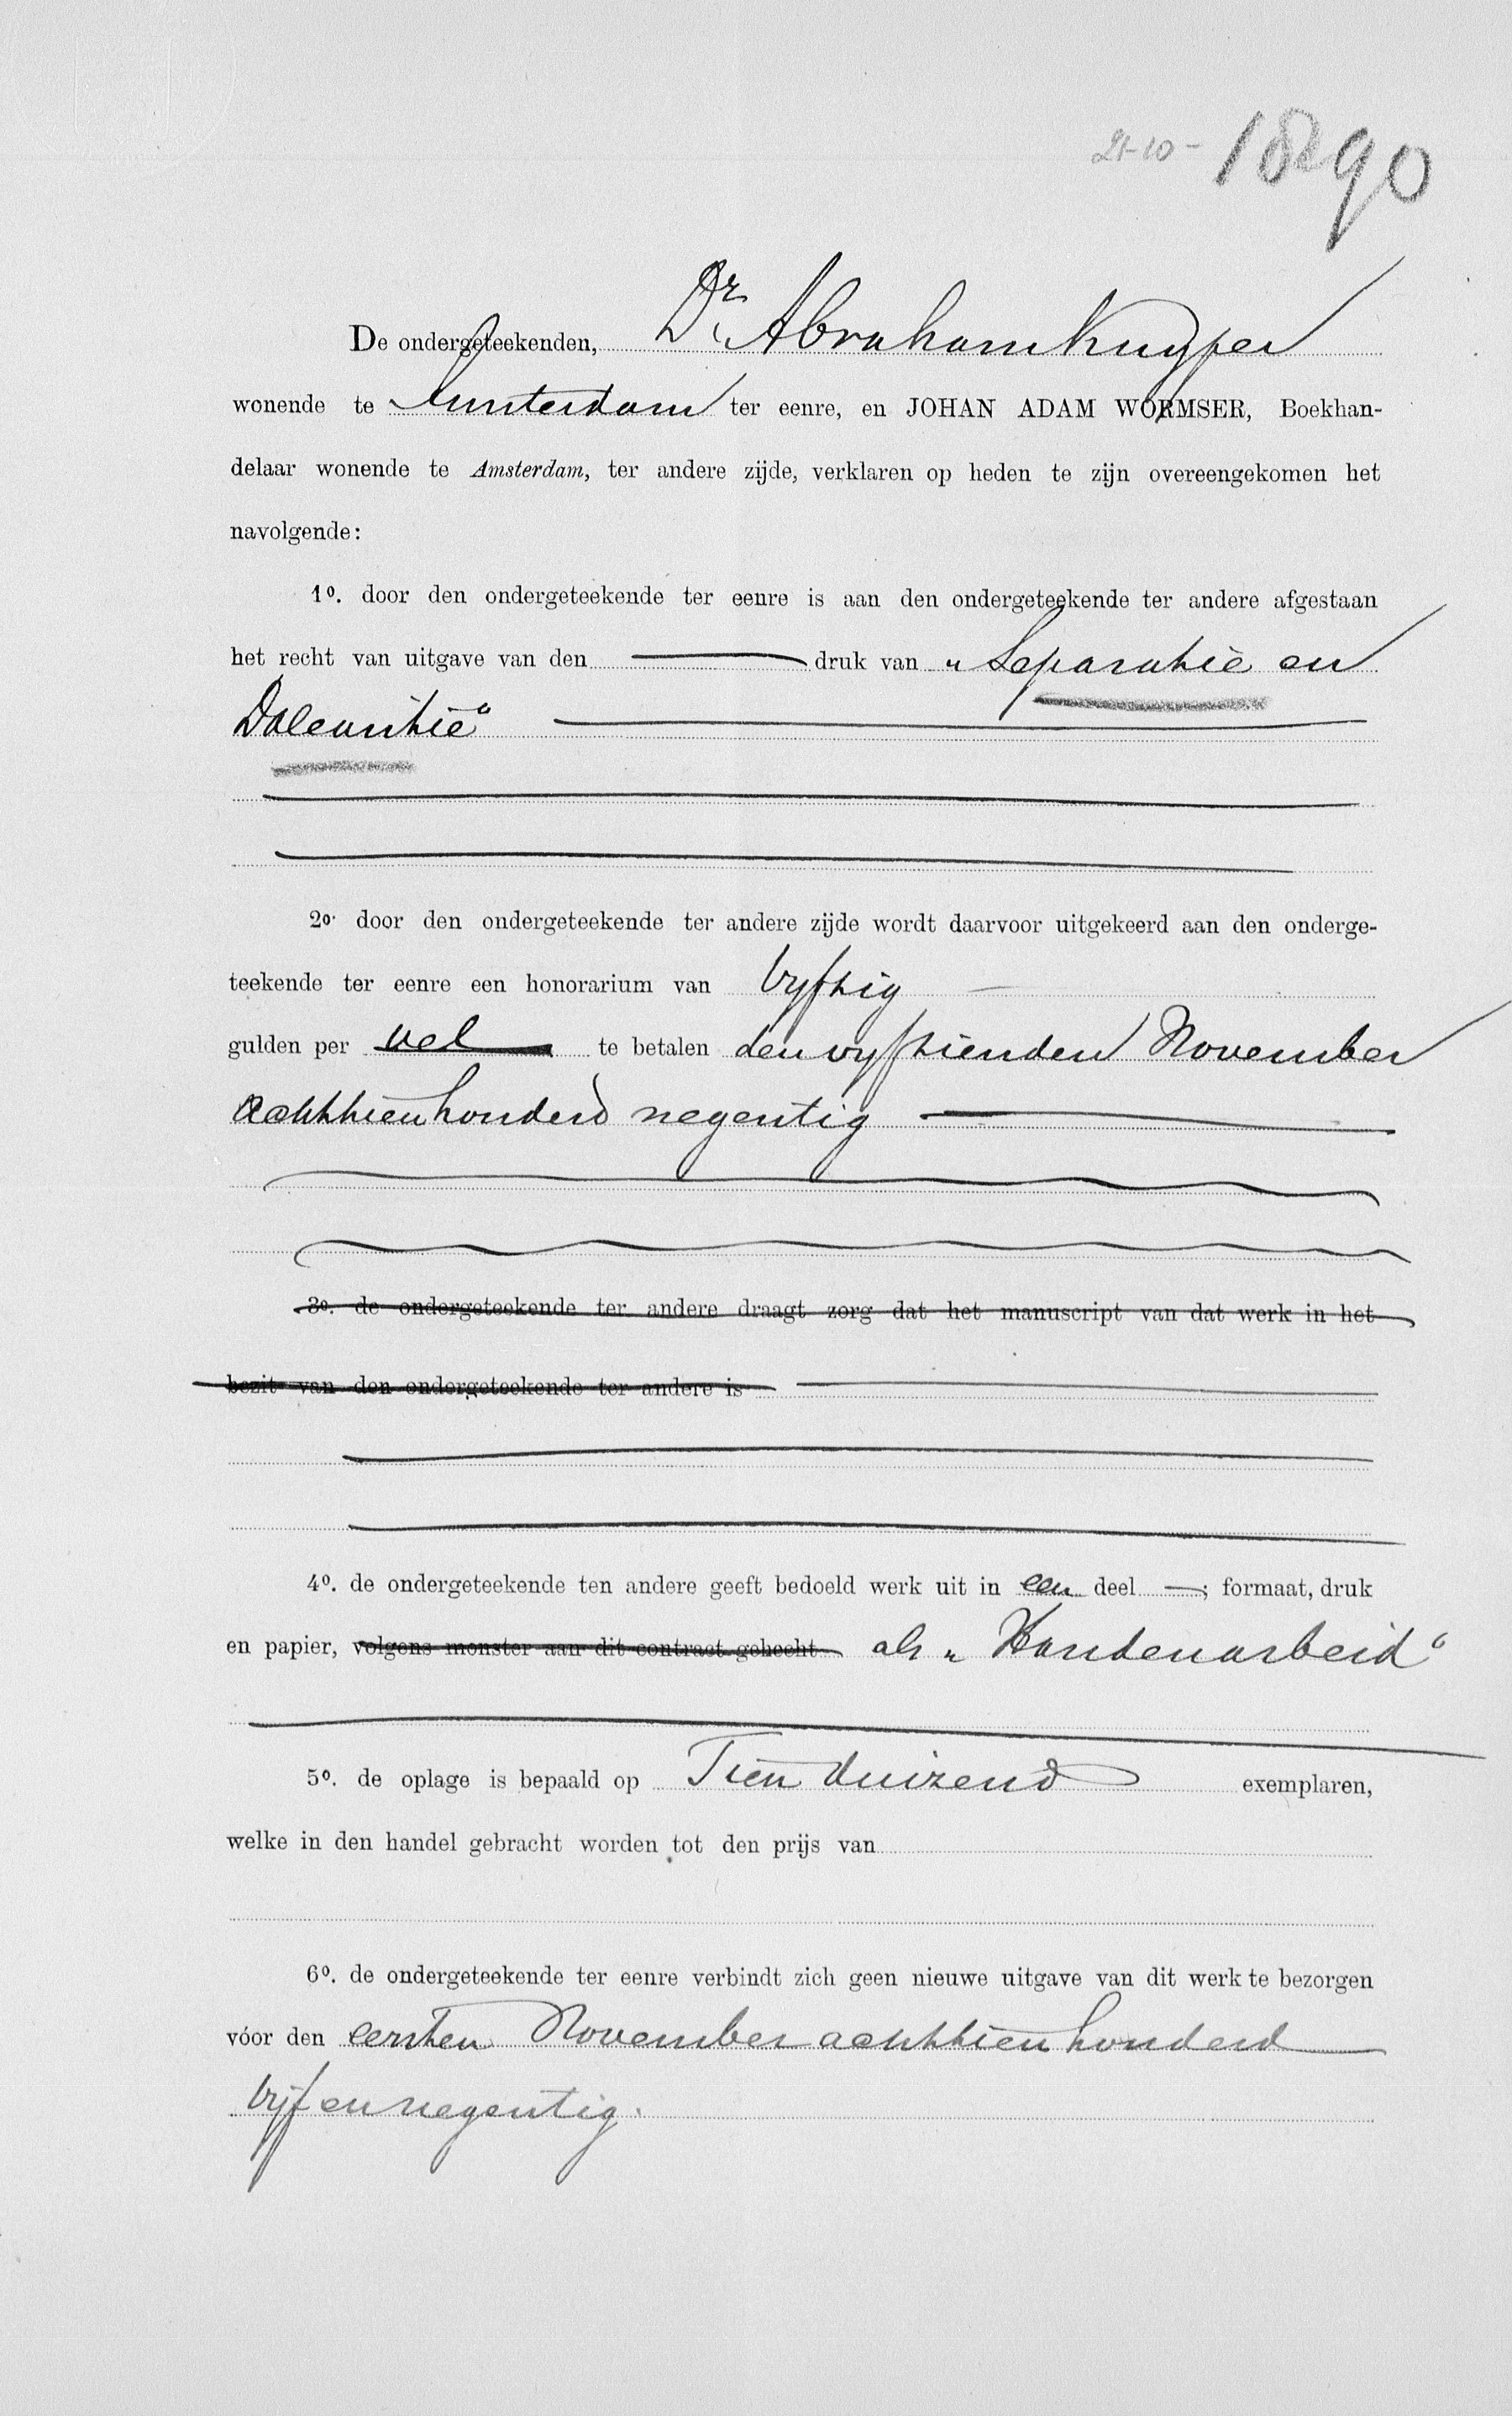 21-10-1890
De ondergeteekenden, Dr. Abraham Kuyper
wonende te Amsterdam ter eenre, en JOHAN ADAM WORMSER, Boekhan-
delaar wonende te Amsterdam, ter andere zijde, verklaren op heden te zijn overeengekomen het
navolgende:
1o. door den ondergeteekende ter eenre is aan den ondergeteekende ter andere afgestaan
het recht van uitgave van den — druk van „Separatie en
Doleantie“
2o. door den ondergeteekende ter andere zijde wordt daarvoor uitgekeerd aan den onderge-
teekende ter eenre een honorarium van vyftig
gulden per vel te betalen den vyftienden November
achttienhonderd negentig
3o. de ondergeteekende ter andere draagt zorg dat het manuscript van dat werk in het
bezit van den ondergeteekende ter andere is
4o. de ondergeteekende ten andere geeft bedoeld werk uit in een deel —; formaat, druk
en papier, volgens monster aan dit contract gehecht als „Handenarbeid“
5o. de oplage is bepaald op Tien duizend exemplaren,
welke in den handel gebracht worden tot den prijs van
6o. de ondergeteekende ter eenre verbindt zich geen nieuwe uitgave van dit werk te bezorgen
vóor den eersten November achttien honderd
vijf en negentig.